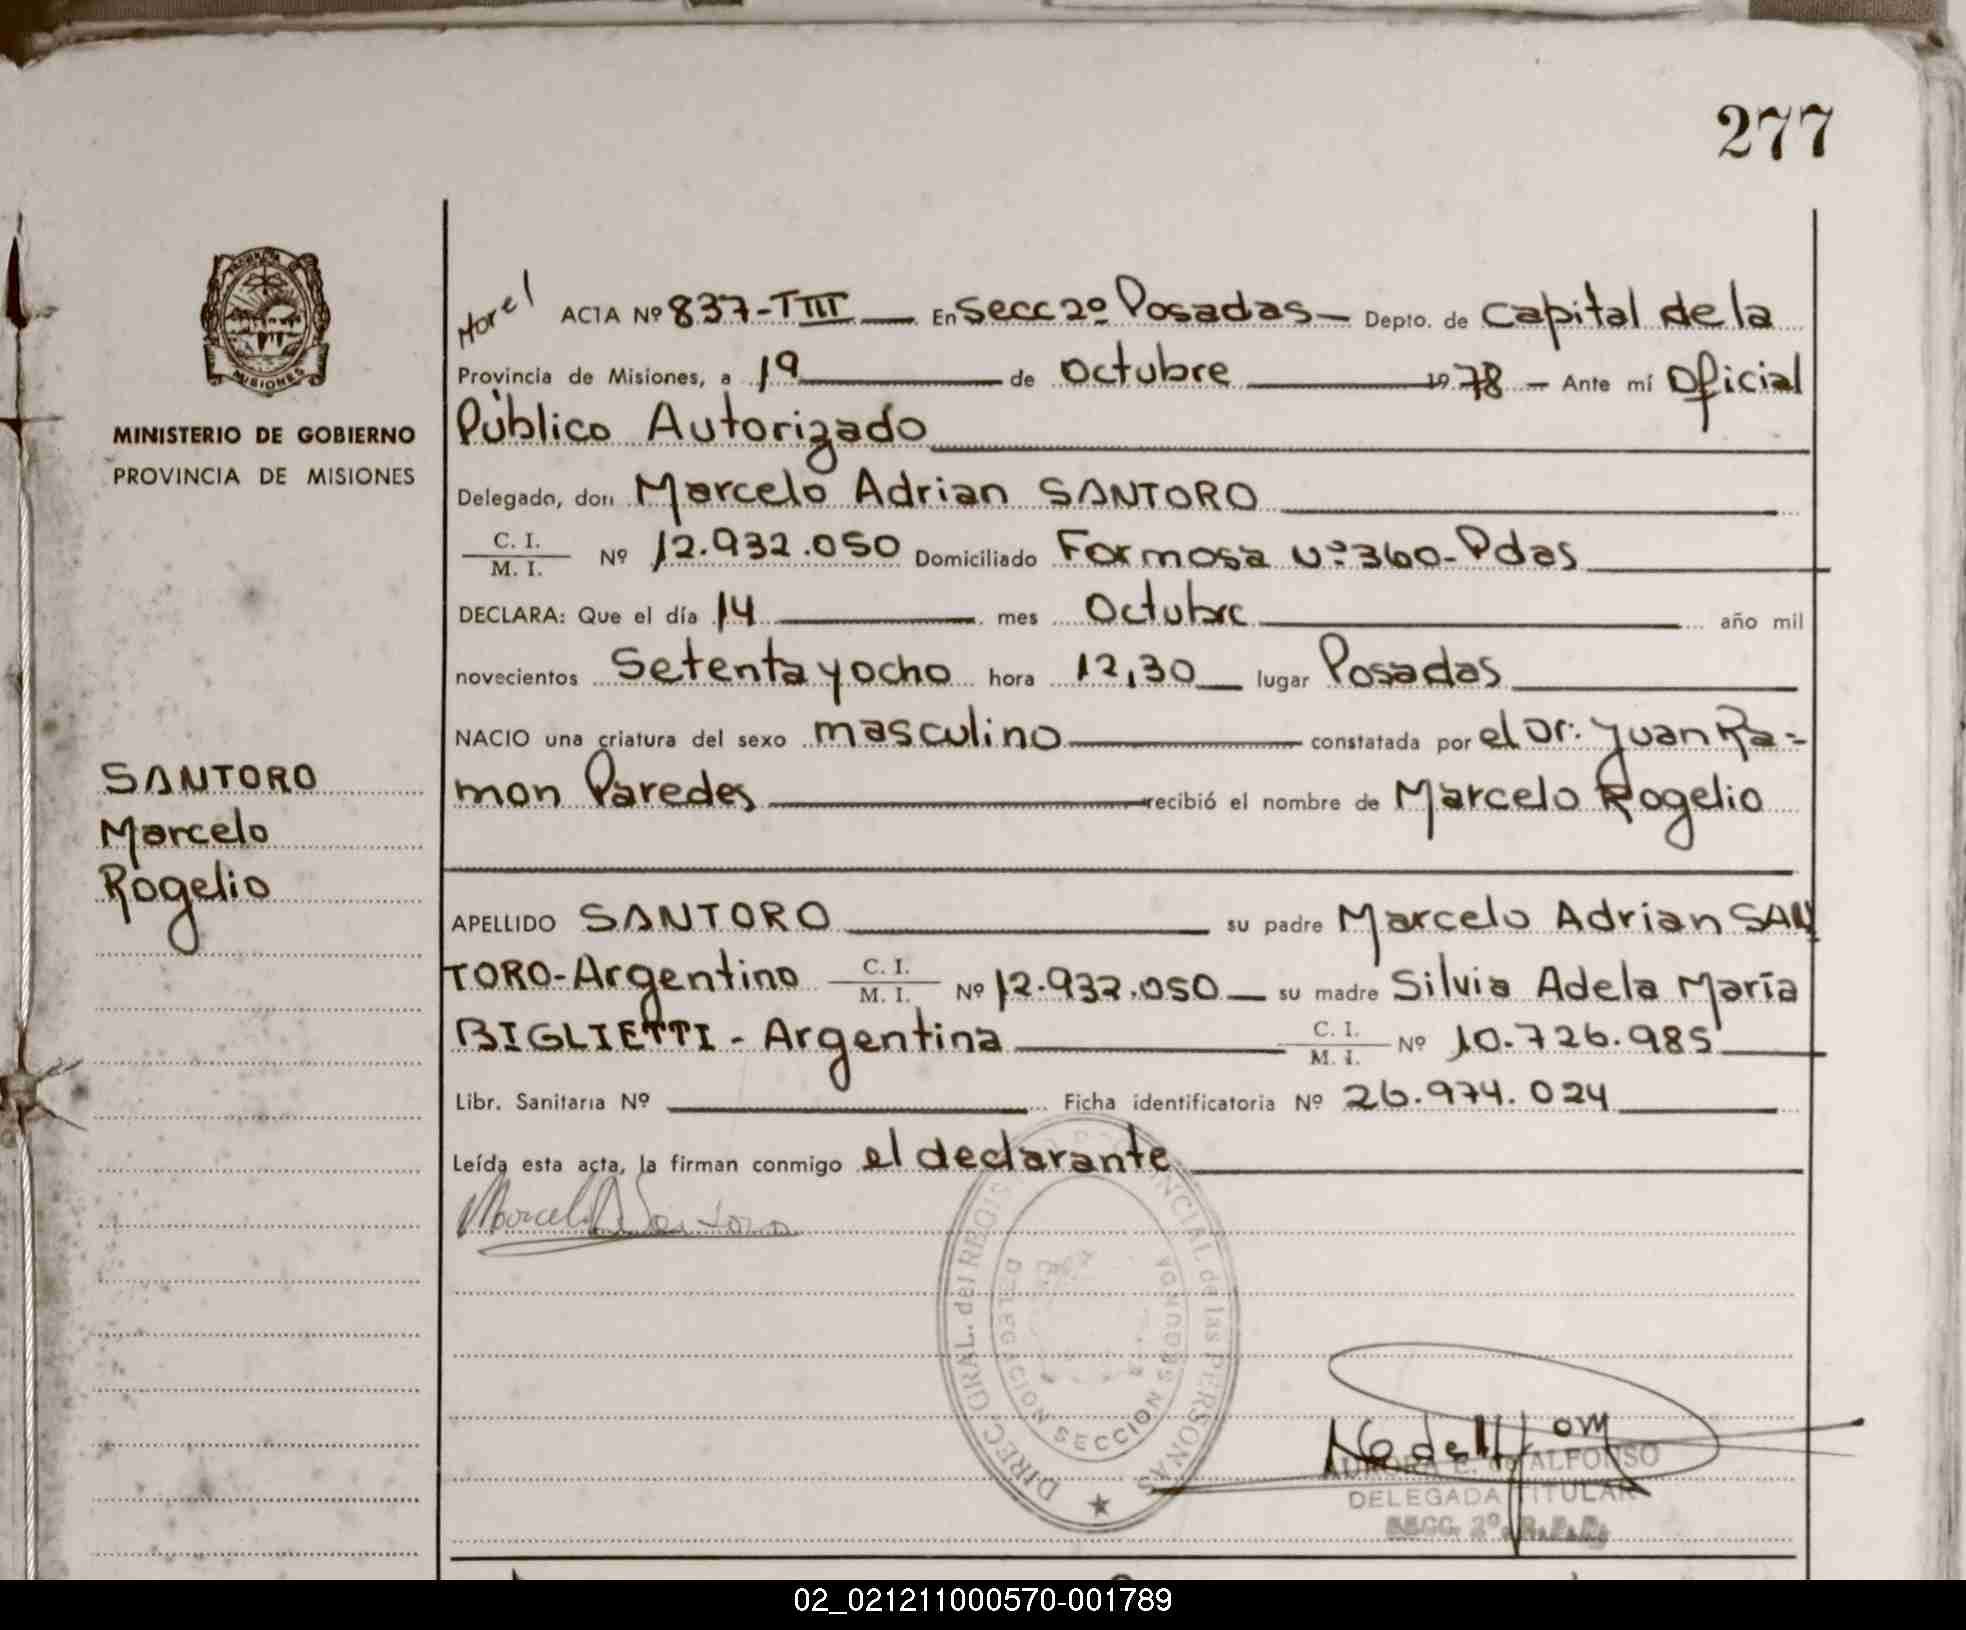 277
PROVINCIA DE MISIONES
MINISTERIO DE GOBIERNO
PROVINCIA DE MISIONES
SANTORO
Marcelo
Rogelio
ACTA Nº 837-TIII En Secc 2º Posadas Depto. de Capital de la
Provincia de Misiones, a 19 de Octubre 1978 Ante mí Oficial
Público Autorizado
Delegado, don Marcelo Adrian SANTORO
C. I. / M. I. Nº 12.932.050 Domiciliado Formosa Nº 360-Pdas
DECLARA: Que el día 14 mes Octubre año mil
novecientos Setenta y ocho hora 12,30 lugar Posadas
NACIO una criatura del sexo masculino constatada por el Dr. Juan Ra-
mon Paredes recibió el nombre de Marcelo Rogelio
APELLIDO SANTORO su padre Marcelo Adrian SAN
TORO-Argentino C. I. / M. I. Nº 12.932.050 su madre Silvia Adela María
BIGLIETTI - Argentina C. I. / M. I. Nº 10.726.985
Libr. Sanitaria Nº Ficha identificatoria Nº 26.974.024
Leída esta acta, la firman conmigo el declarante
Marcelo A Santoro
DIREC. GRAL. del REGISTRO PROVINCIAL de las PERSONAS
DELEGACION SECCION SEGUNDA
AURORA E. de ALFONSO
DELEGADA TITULAR
SECC. 2º R.P.P.
02_021211000570-001789